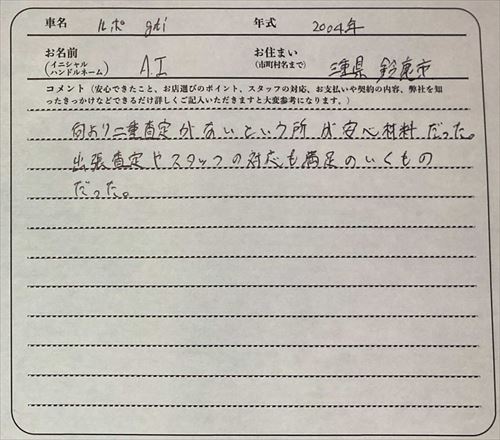 車名 ルポ gti 年式 2004年
お名前 (イニシャル ハンドルネーム) A.I お住まい (市町村名まで) 三重県 鈴鹿市
コメント(安心できたこと、お店選びのポイント、スタッフの対応、お支払いや契約の内容、弊社を知
ったきっかけなどできるだけ詳しくご記入いただきますと大変参考になります。)
何より二重査定がないという所が安心材料だった。
出張査定やスタッフの対応も満足のいくもの
だった。